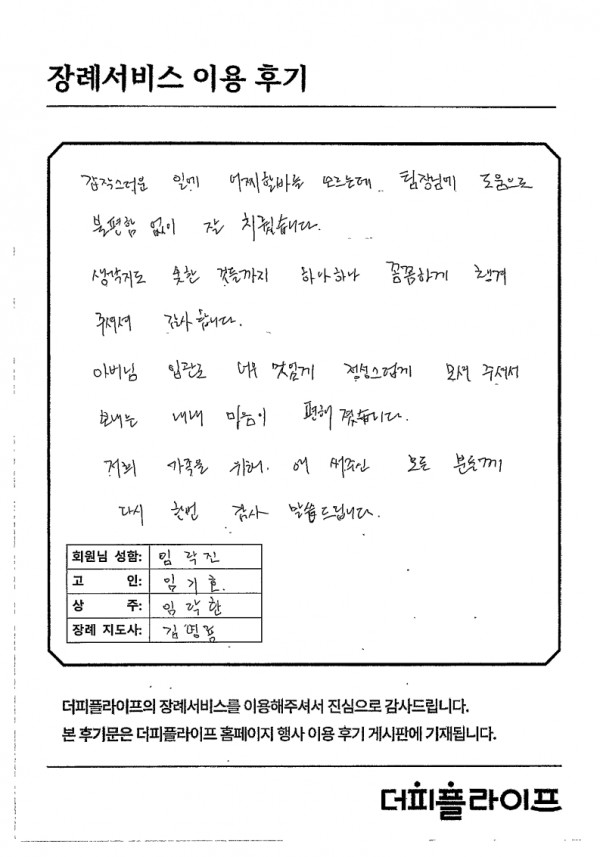 장례서비스 이용 후기
갑작스러운 일에 어찌할바를 모르는데 팀장님에 도움으로
불편함 없이 잘 치뤘습니다.
생각지도 못한 것들까지 하나하나 꼼꼼하게 챙겨
주셔서 감사합니다.
아버님 입관도 너무 멋있게 정성스럽게 모셔 주셔서
보내는 내내 마음이 편해졌습니다.
저희 가족을 위해. 애 써주신 모든 분들께
다시 한번 감사 말씀드립니다.
회원님 성함: 임락진
고 인: 임기호.
상 주: 임락환
장례 지도사: 김명
더피플라이프의 장례서비스를 이용해주셔서 진심으로 감사드립니다.
본 후기문은 더피플라이프 홈페이지 행사 이용 후기 게시판에 기재됩니다.
더피플라이프